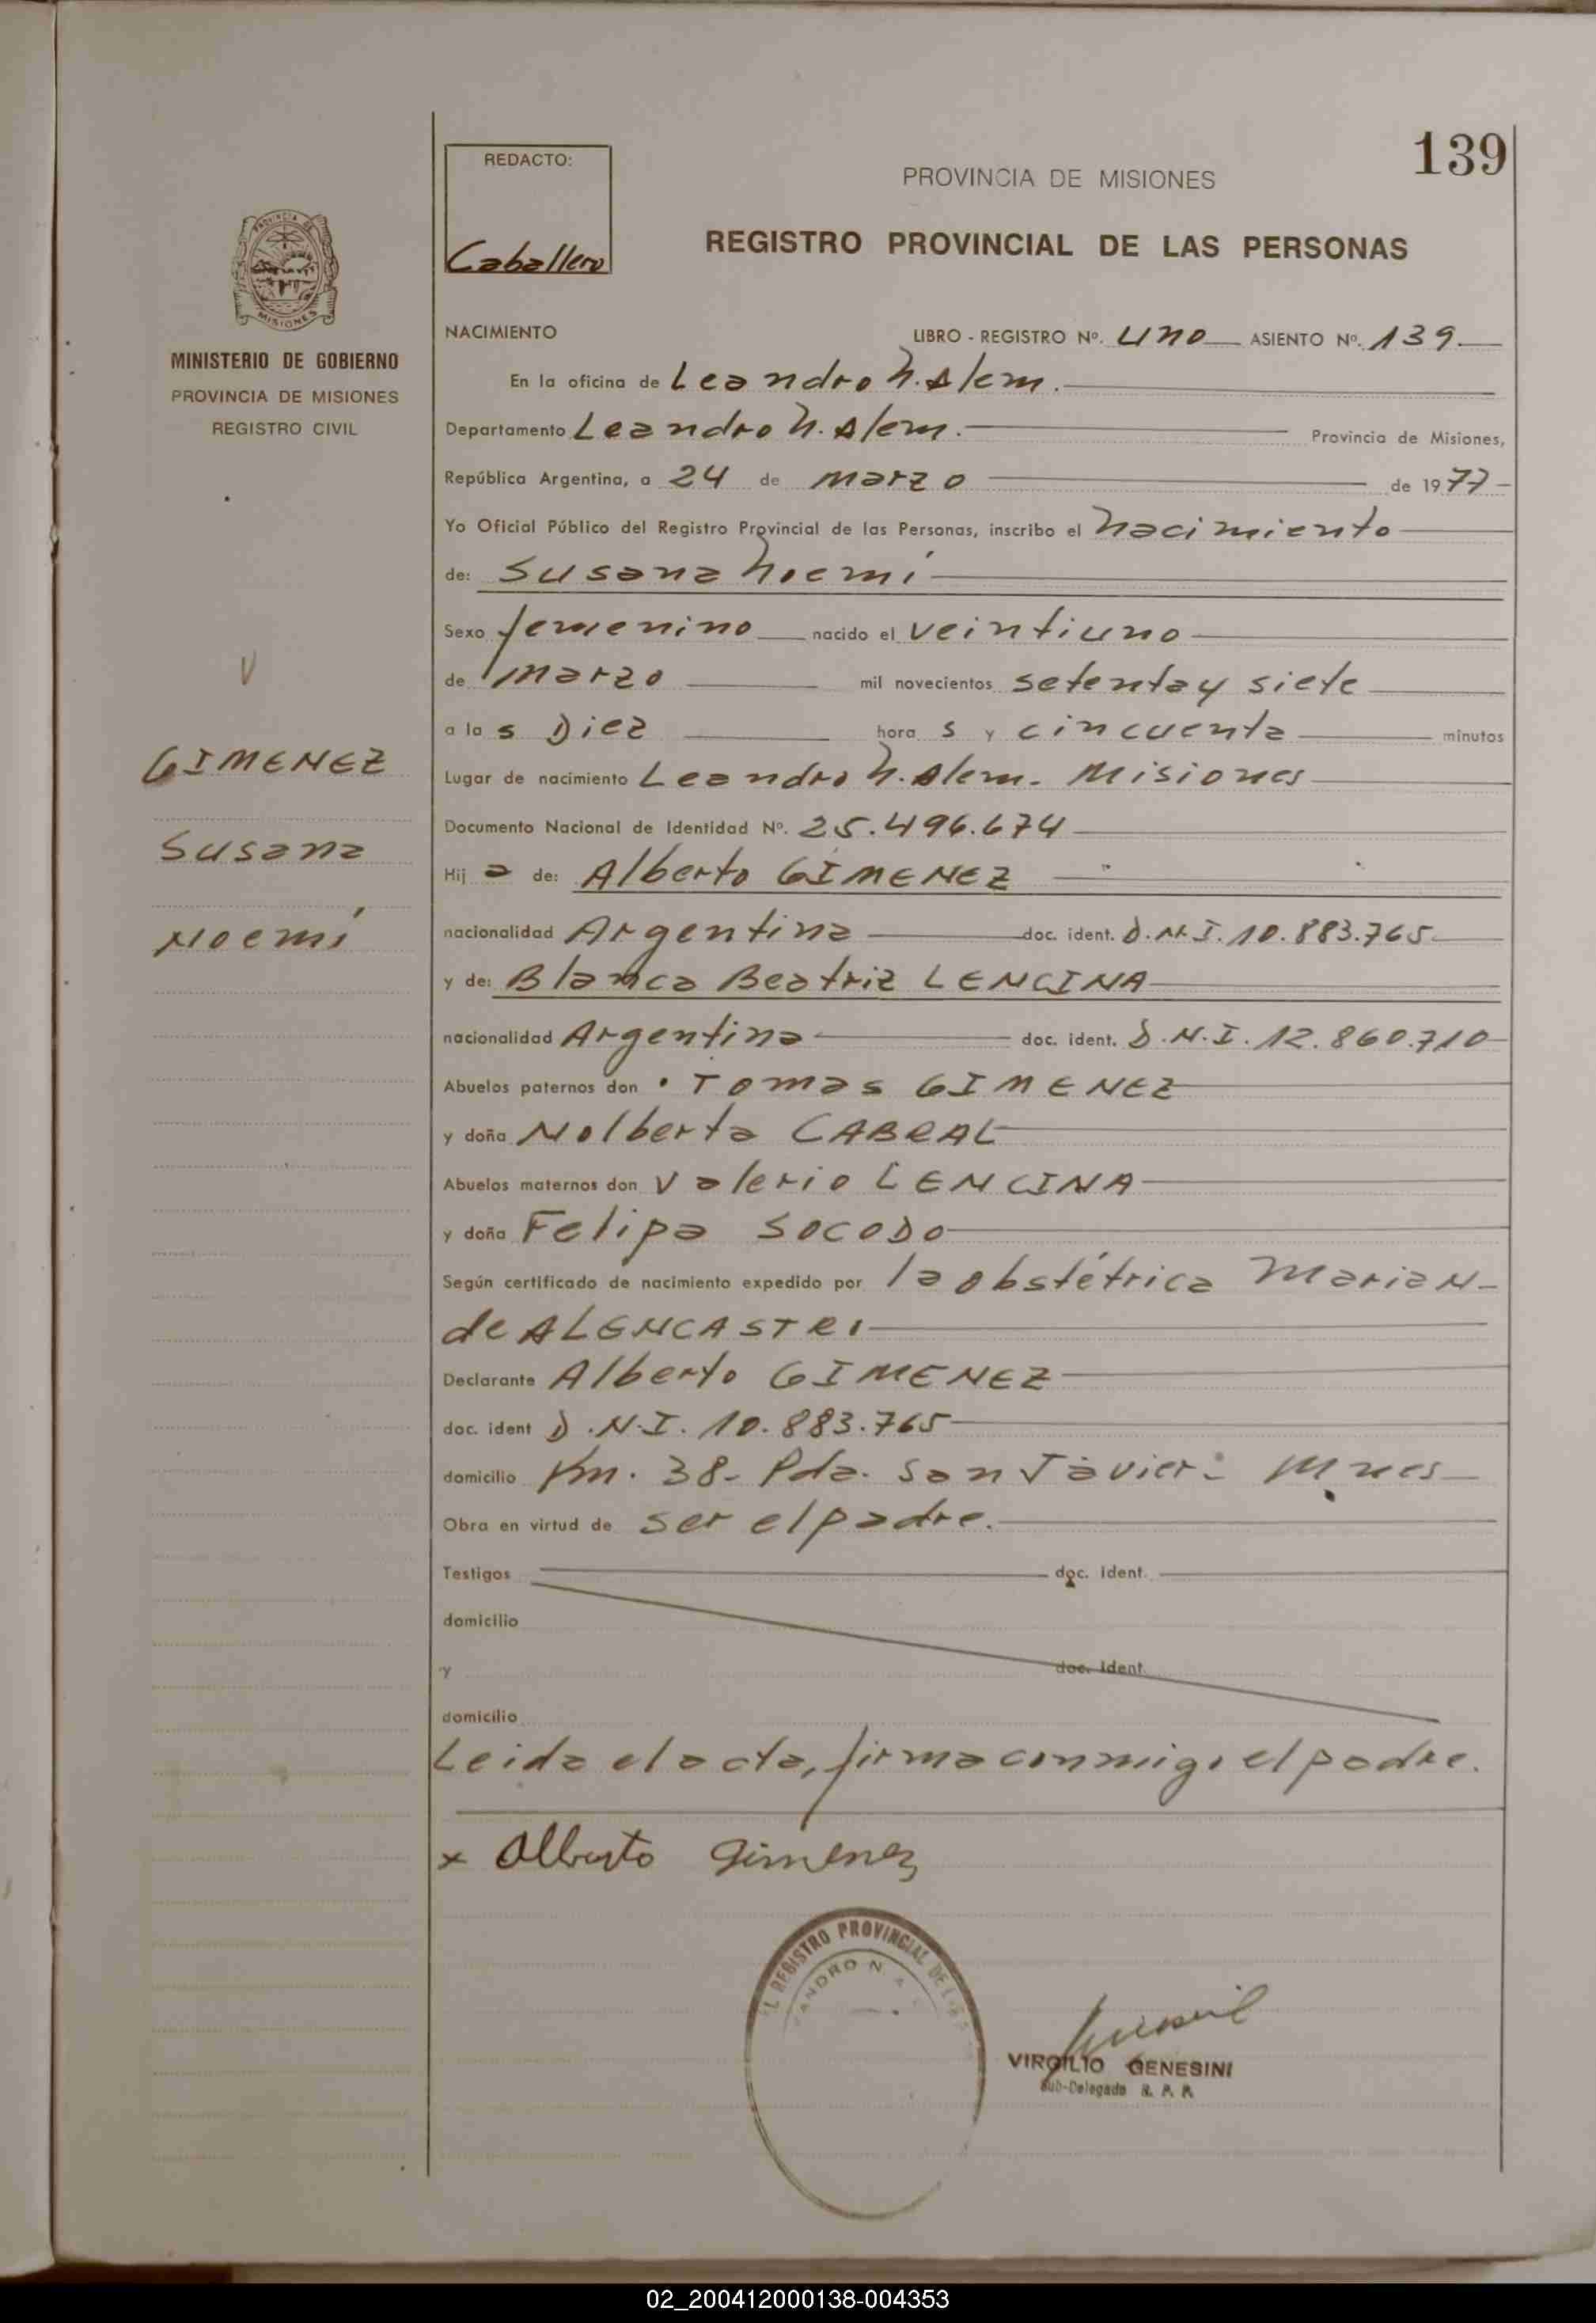 139
REDACTO:
Caballero
PROVINCIA DE MISIONES
REGISTRO PROVINCIAL DE LAS PERSONAS
PROVINCIA DE
MISIONES
MINISTERIO DE GOBIERNO
PROVINCIA DE MISIONES
REGISTRO CIVIL
GIMENEZ
Susana
Noemí
NACIMIENTO LIBRO - REGISTRO Nº. Uno ASIENTO Nº. 139.
En la oficina de Leandro N. Alem.
Departamento Leandro N. Alem. Provincia de Misiones,
República Argentina, a 24 de marzo de 1977
Yo Oficial Público del Registro Provincial de las Personas, inscribo el nacimiento
de: Susana Noemí
Sexo femenino nacido el veintiuno
de marzo mil novecientos setenta y siete
a las Diez horas y cincuenta minutos
Lugar de nacimiento Leandro N. Alem. Misiones
Documento Nacional de Identidad Nº. 25.496.674
Hija de: Alberto GIMENEZ
nacionalidad Argentina doc. ident. D.N.I. 10.883.765
y de: Blanca Beatriz LENCINA
nacionalidad Argentina doc. ident. D.N.I. 12.860.710
Abuelos paternos don Tomas GIMENEZ
y doña Nolberta CABRAL
Abuelos maternos don Valerio LENCINA
y doña Felipa SOCODO
Según certificado de nacimiento expedido por la obstétrica Maria N-
de ALENCASTRI
Declarante Alberto GIMENEZ
doc. ident D.N.I. 10.883.765
domicilio Km. 38- Pda. San Javier- Mnes
Obra en virtud de ser el padre.
Testigos doc. ident.
domicilio
y doc. ident.
domicilio
Leida el acta, firma conmigo el padre.
x Alberto Gimenez
REGISTRO PROVINCIAL DE
ANDRO N. A
VIRGILIO GENESINI
Sub-Delegado R. P. P.
02_200412000138-004353